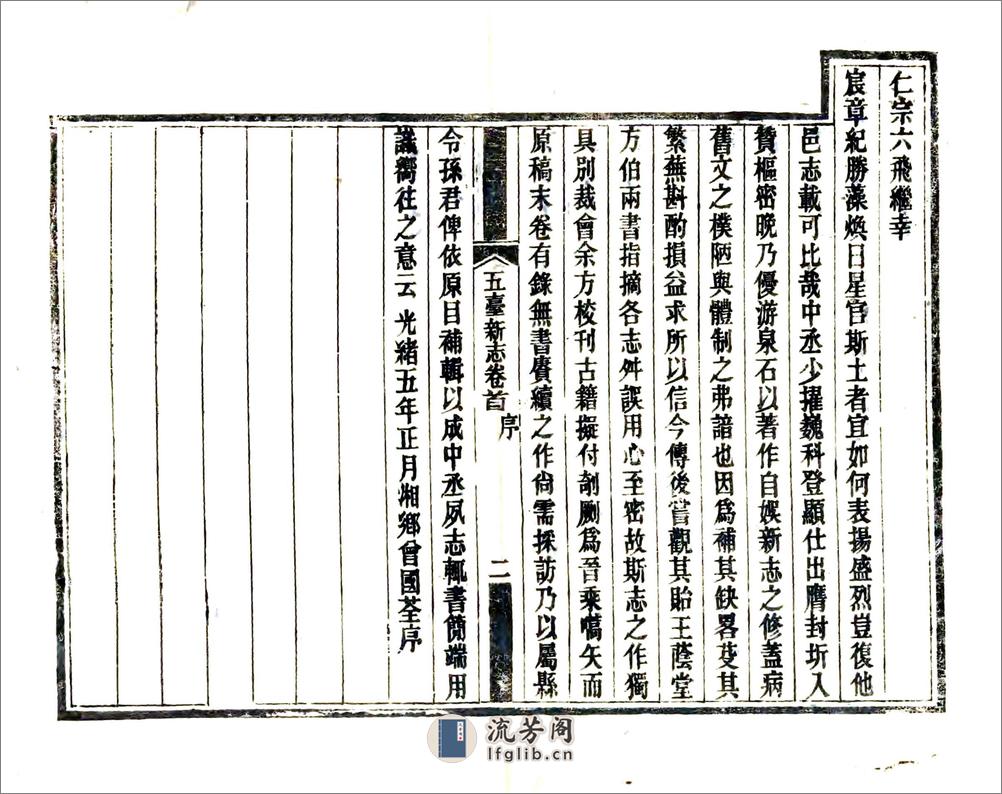 仁宗六飛繼幸
宸章紀勝藻煥日星官斯土者宜如何表揚盛烈豈復他
邑志載可比哉中丞少擢巍科登顯仕出膺封圻入
贊樞密晚乃優游泉石以著作自娛新志之修蓋病
舊文之樸陋與體制之弗諳也因爲補其缺畧芟其
繁蕪斟酌損益求所以信今傳後嘗觀其貽王蔭堂
方伯兩書指摘各志舛誤用心至密故斯志之作獨
具別裁會余方校刊古籍擬付剞劂爲晉乘嚆矢而
原稿末卷有錄無書賡續之作尙需採訪乃以屬縣
五臺新志卷首
序
二
令孫君俾依原目補輯以成中丞夙志輒書簡端用
識嚮往之意云光緒五年正月湘鄉曾國荃序
流芳阁
lfglib.cn